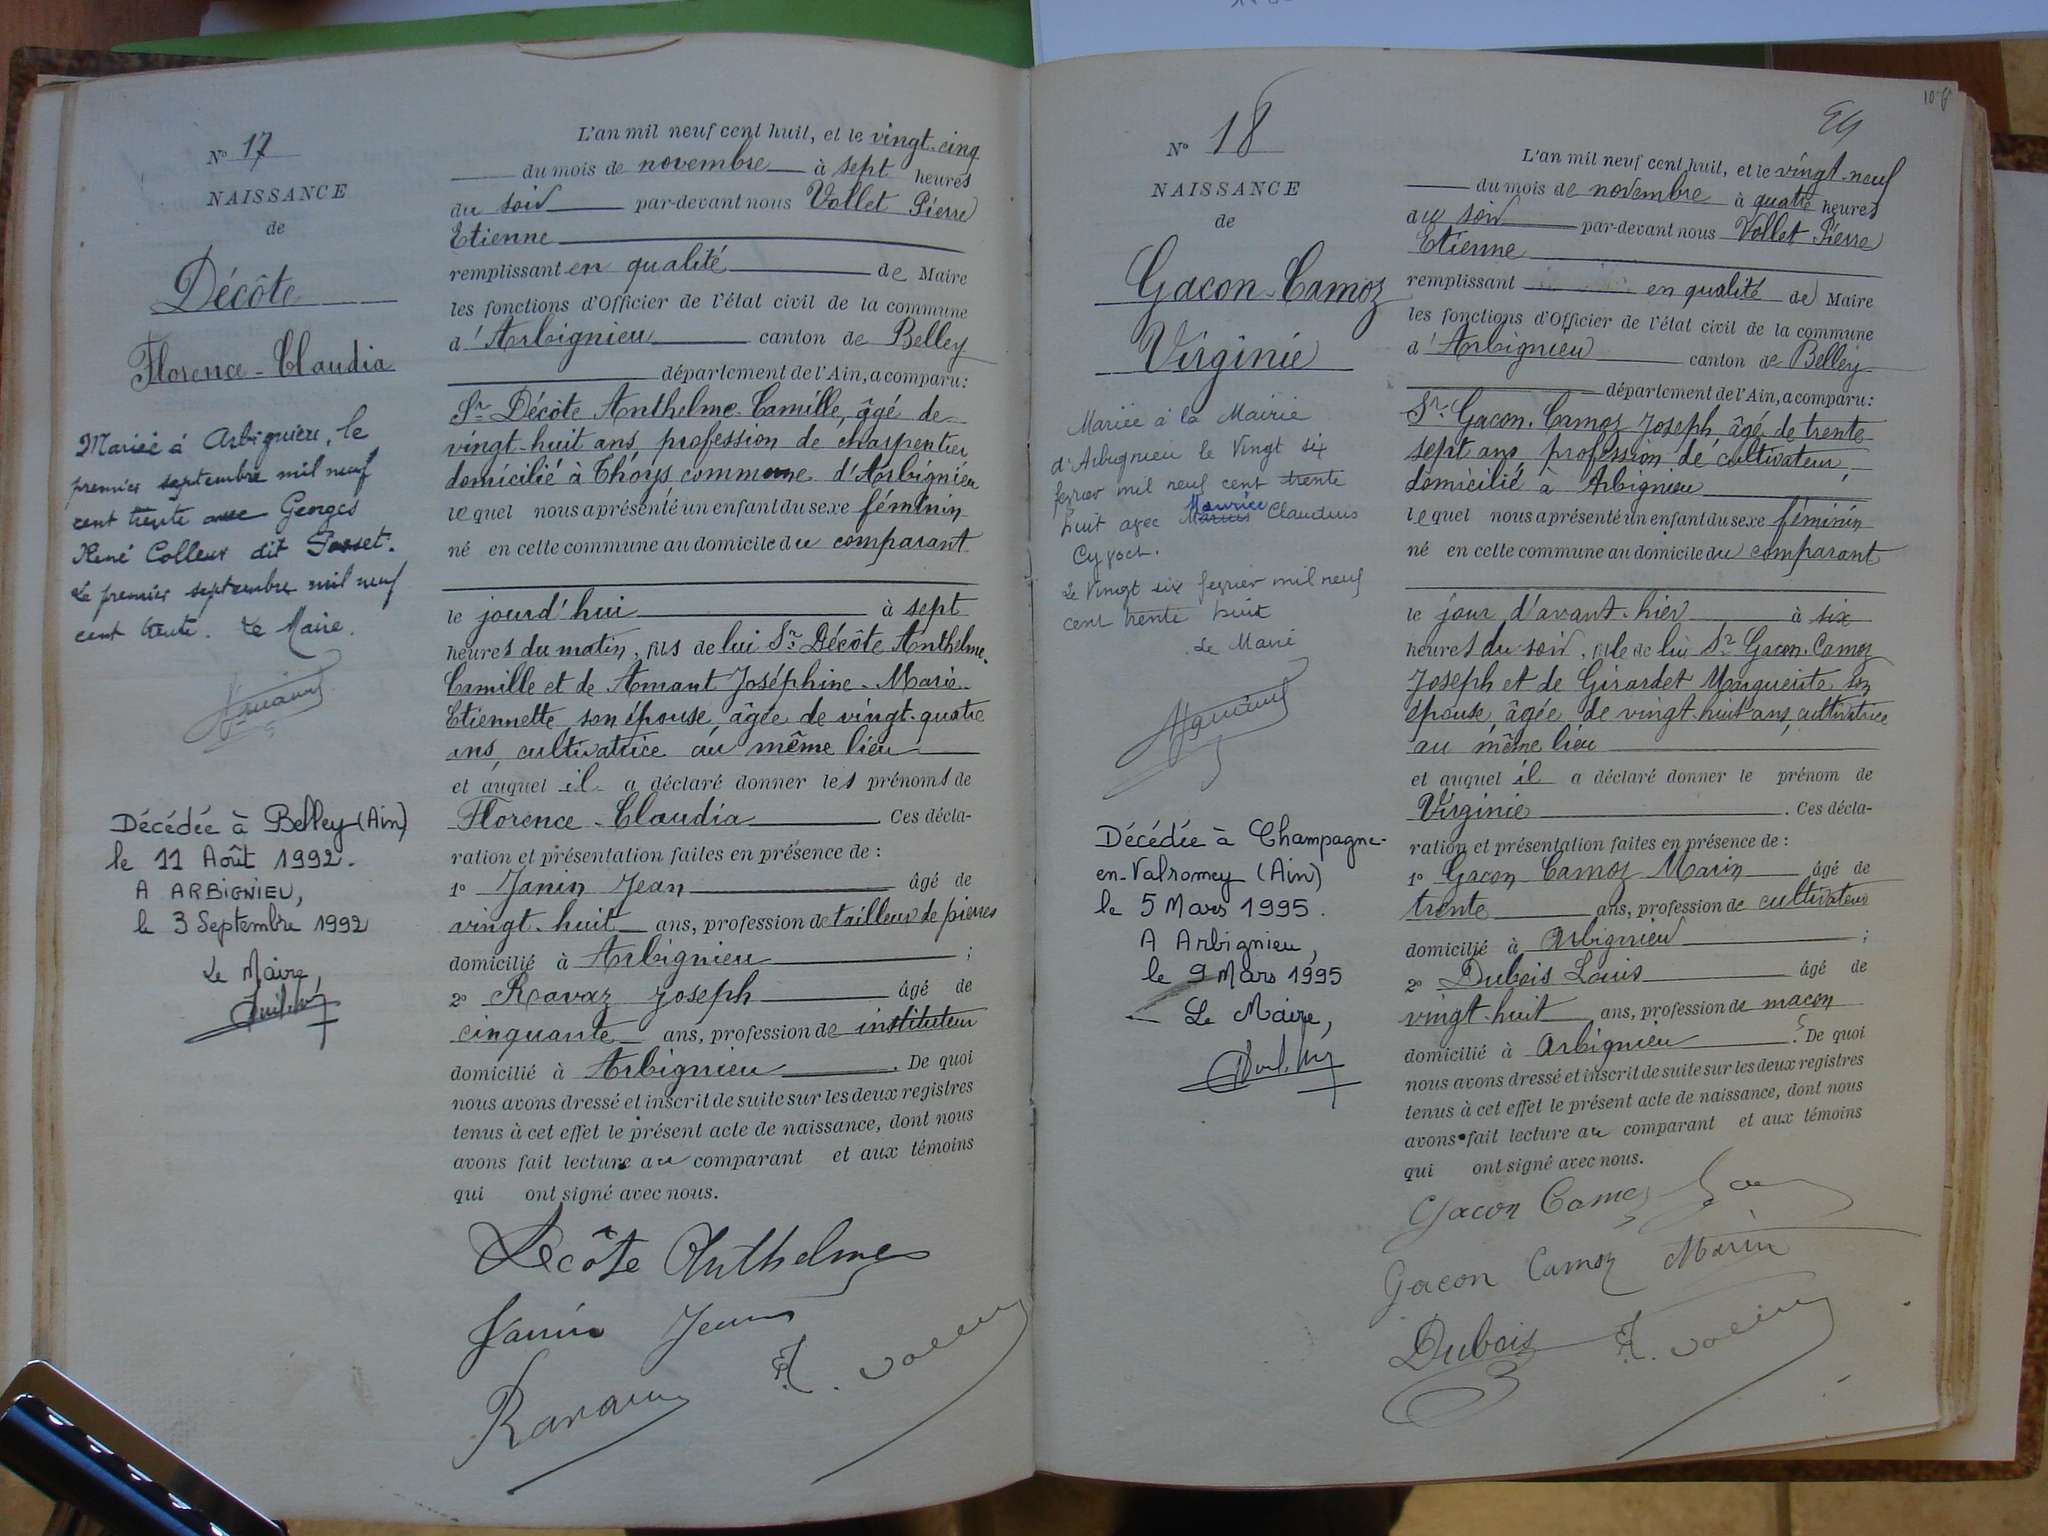 N° 17
NAISSANCE
de
Décôte
Florence-Claudia
Mariée à Arbignieu, le
premier septembre mil neuf
cent trente avec Georges
René Colleur dit
Le premier septembre mil neuf
cent trente. Le Maire.
Décédée à Belley (Ain)
le 11 Août 1992.
A ARBIGNIEU,
le 3 Septembre 1992
Le Maire,
L'an mil neuf cent huit, et le vingt-cinq
du mois de novembre à sept heures
du soir par-devant nous Vollet Pierre
Etienne
remplissant en qualité de Maire
les fonctions d'Officier de l'état civil de la commune
d'Arbignieu canton de Belley
département de l'Ain, a comparu:
Sr Décôte Anthelme-Camille, âgé de
vingt-huit ans, profession de charpentier
domicilié à Thoys commune d'Arbignieu
lequel nous a présenté un enfant du sexe féminin
né en cette commune au domicile du comparant
le jourd'hui à sept
heures du matin, fils de lui Sr Décôte Anthelme-
Camille et de Amant Joséphine-Marie-
Etiennette son épouse, âgée de vingt-quatre
ans, cultivatrice au même lieu
et auquel il a déclaré donner les prénoms de
Florence-Claudia Ces décla-
ration et présentation faites en présence de :
1° Janin Jean âgé de
vingt-huit ans, profession de tailleur de pierres
domicilié à Arbignieu ;
2° Ravaz Joseph âgé de
cinquante ans, profession de instituteur
domicilié à Arbignieu . De quoi
nous avons dressé et inscrit de suite sur les deux registres
tenus à cet effet le présent acte de naissance, dont nous
avons fait lecture au comparant et aux témoins
qui ont signé avec nous.
Decôte Anthelme
Janin Jean
Ravaz
N° 18
NAISSANCE
de
Gacon-Camoz
Virginie
Mariée à la Mairie
d'Arbignieu le Vingt six
fevrier mil neuf cent trente
huit avec Marius Maurice Claudius
Le Vingt six fevrier mil neuf
cent trente huit
Le Maire
Décédée à Champagne-
en-Valromey (Ain)
le 5 Mars 1995.
A Arbignieu,
le 9 Mars 1995
Le Maire,
L'an mil neuf cent huit, et le vingt-neuf
du mois de novembre à quatre heures
du soir par-devant nous Vollet Pierre
Etienne
remplissant en qualité de Maire
les fonctions d'Officier de l'état civil de la commune
d'Arbignieu canton de Belley
département de l'Ain, a comparu:
Sr. Gacon-Camoz Joseph âgé de trente
sept ans, profession de cultivateur,
domicilié à Arbignieu
lequel nous a présenté un enfant du sexe féminin
né en cette commune au domicile du comparant
le jour d'avant-hier à six
heures du soir, fille de lui Sr Gacon-Camoz
Joseph et de Girardet Marguerite son
épouse, âgée de vingt-huit ans, cultivatrice
au même lieu
et auquel il a déclaré donner le prénom de
Virginie . Ces décla-
ration et présentation faites en présence de :
1° Gacon-Camoz Marin âgé de
trente ans, profession de cultivateur
domicilié à Arbignieu ;
2° Dubois Louis âgé de
vingt-huit ans, profession de maçon
domicilié à Arbignieu . De quoi
nous avons dressé et inscrit de suite sur les deux registres
tenus à cet effet le présent acte de naissance, dont nous
avons fait lecture au comparant et aux témoins
qui ont signé avec nous.
Gacon Camoz
Gacon Camoz Marin
Dubois